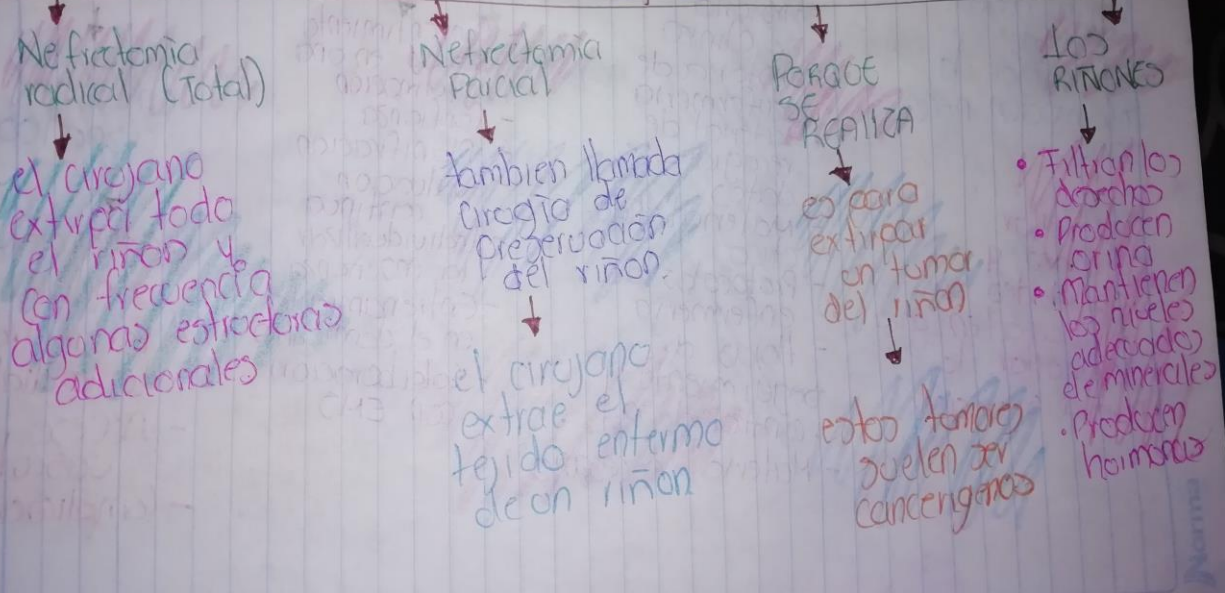 Nefrectomia
radical (Total)
el cirujano
extirpa todo
el riñon y
con frecuencia
algunas estructuras
adicionales
Nefrectomia
Parcial
tambien llamada
cirugia de
preservación
del riñon.
el cirujano
extrae el
tejido enfermo
de un riñon
PORQUE
SE
REALIZA
es para
extirpar
un tumor
del riñon.
estos tumores
suelen ser
cancerigenos
Los
RIÑONES
• Filtran los
desechos
• Producen
orina
• Mantienen
los niveles
adecuados
de minerales
• Producen
hormonas
Norma